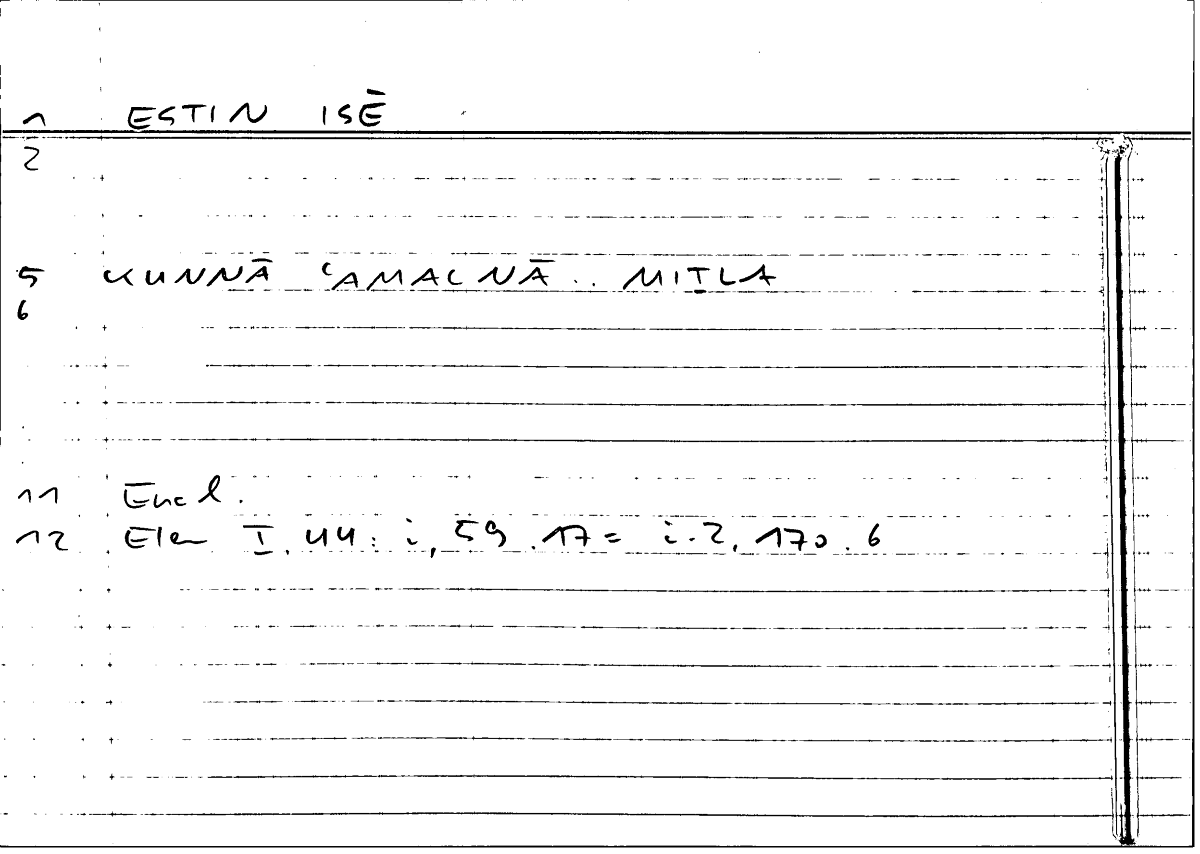 1 ESTIN ISĒ
2
5 KUNNĀ ʿAMALNĀ .. MIṮLA
6
11 Eucl.
12 Elem I.44: i, 59.17 = i.2, 170.6